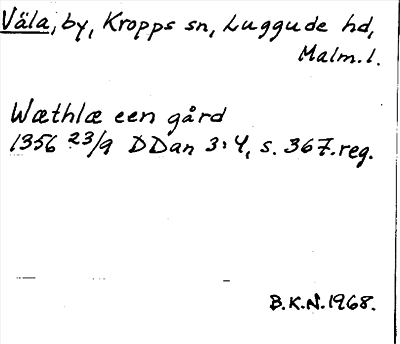 Väla, by, Kropps sn, Luggude hd,
Malm.l.
Wæthlæ een gård
1356 23/9 DDan 3:4, s. 367.reg.
B.K.N.1968.